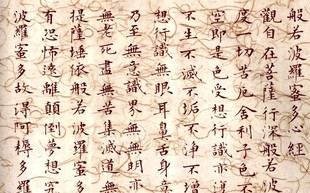 般若波羅蜜多心經
觀自在菩薩行深般若波
度一切苦厄舍利子色不
空即是色受想行識亦復
不生不滅不垢不淨不增
想行識無眼耳鼻舌身意
乃至無意識界無無明亦
無老死盡無苦集滅道無
提薩埵依般若波羅蜜多
有恐怖遠離顛倒夢想究
波羅蜜多故得阿耨多羅